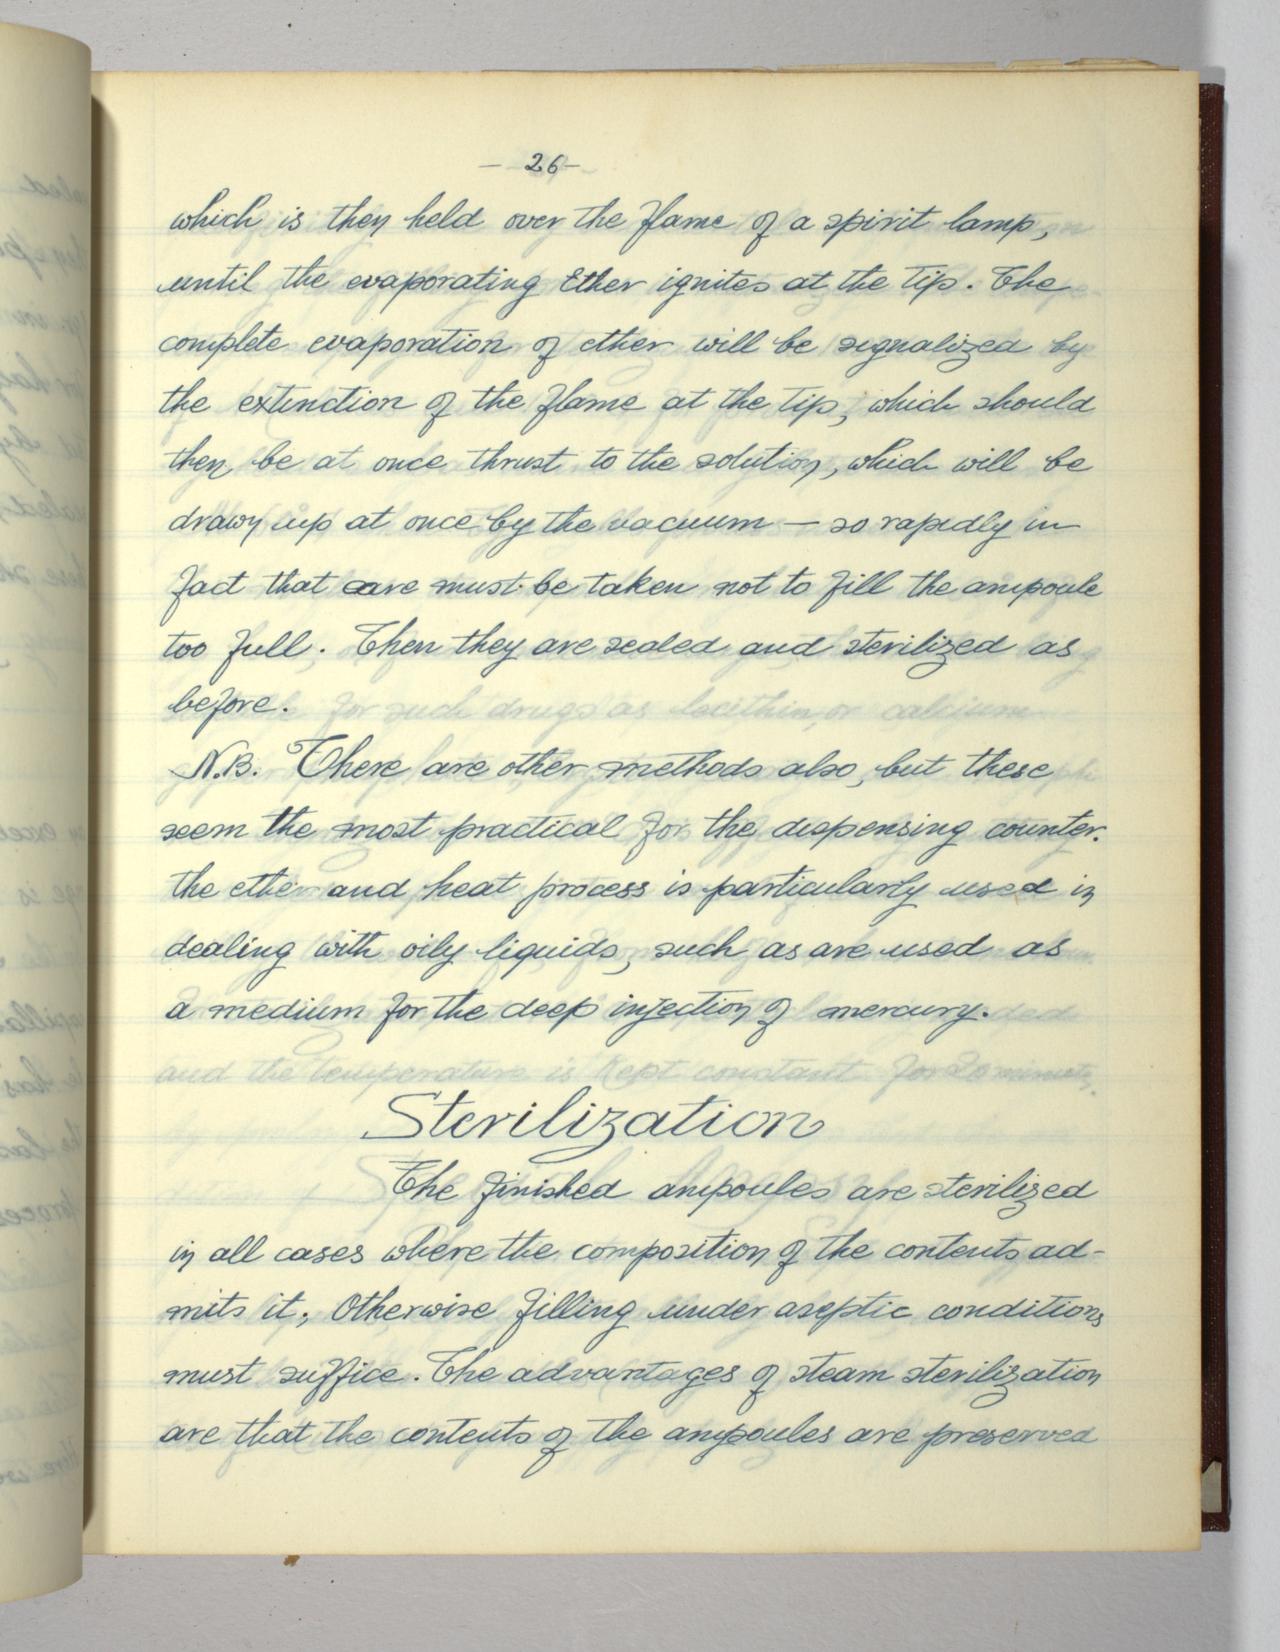 — 26 —
which is then held over the flame of a spirit lamp,
until the evaporating Ether ignites at the tip. The
complete evaporation of ether will be signalized by
the extinction of the flame at the tip, which should
then be at once thrust to the solution, which will be
drawn up at once by the vacuum — so rapidly in
fact that care must be taken not to fill the ampoule
too full. Then they are sealed and sterilized as
before.
N.B. There are other methods also, but these
seem the most practical for the dispensing counter.
the ether and heat process is particularly used in
dealing with oily liquids, such as are used as
a medium for the deep injection of mercury.
Sterilization
The finished ampoules are sterilized
in all cases where the composition of the contents ad-
mits it; Otherwise filling under aseptic conditions
must suffice. The advantages of steam sterilization
are that the contents of the ampoules are preserved